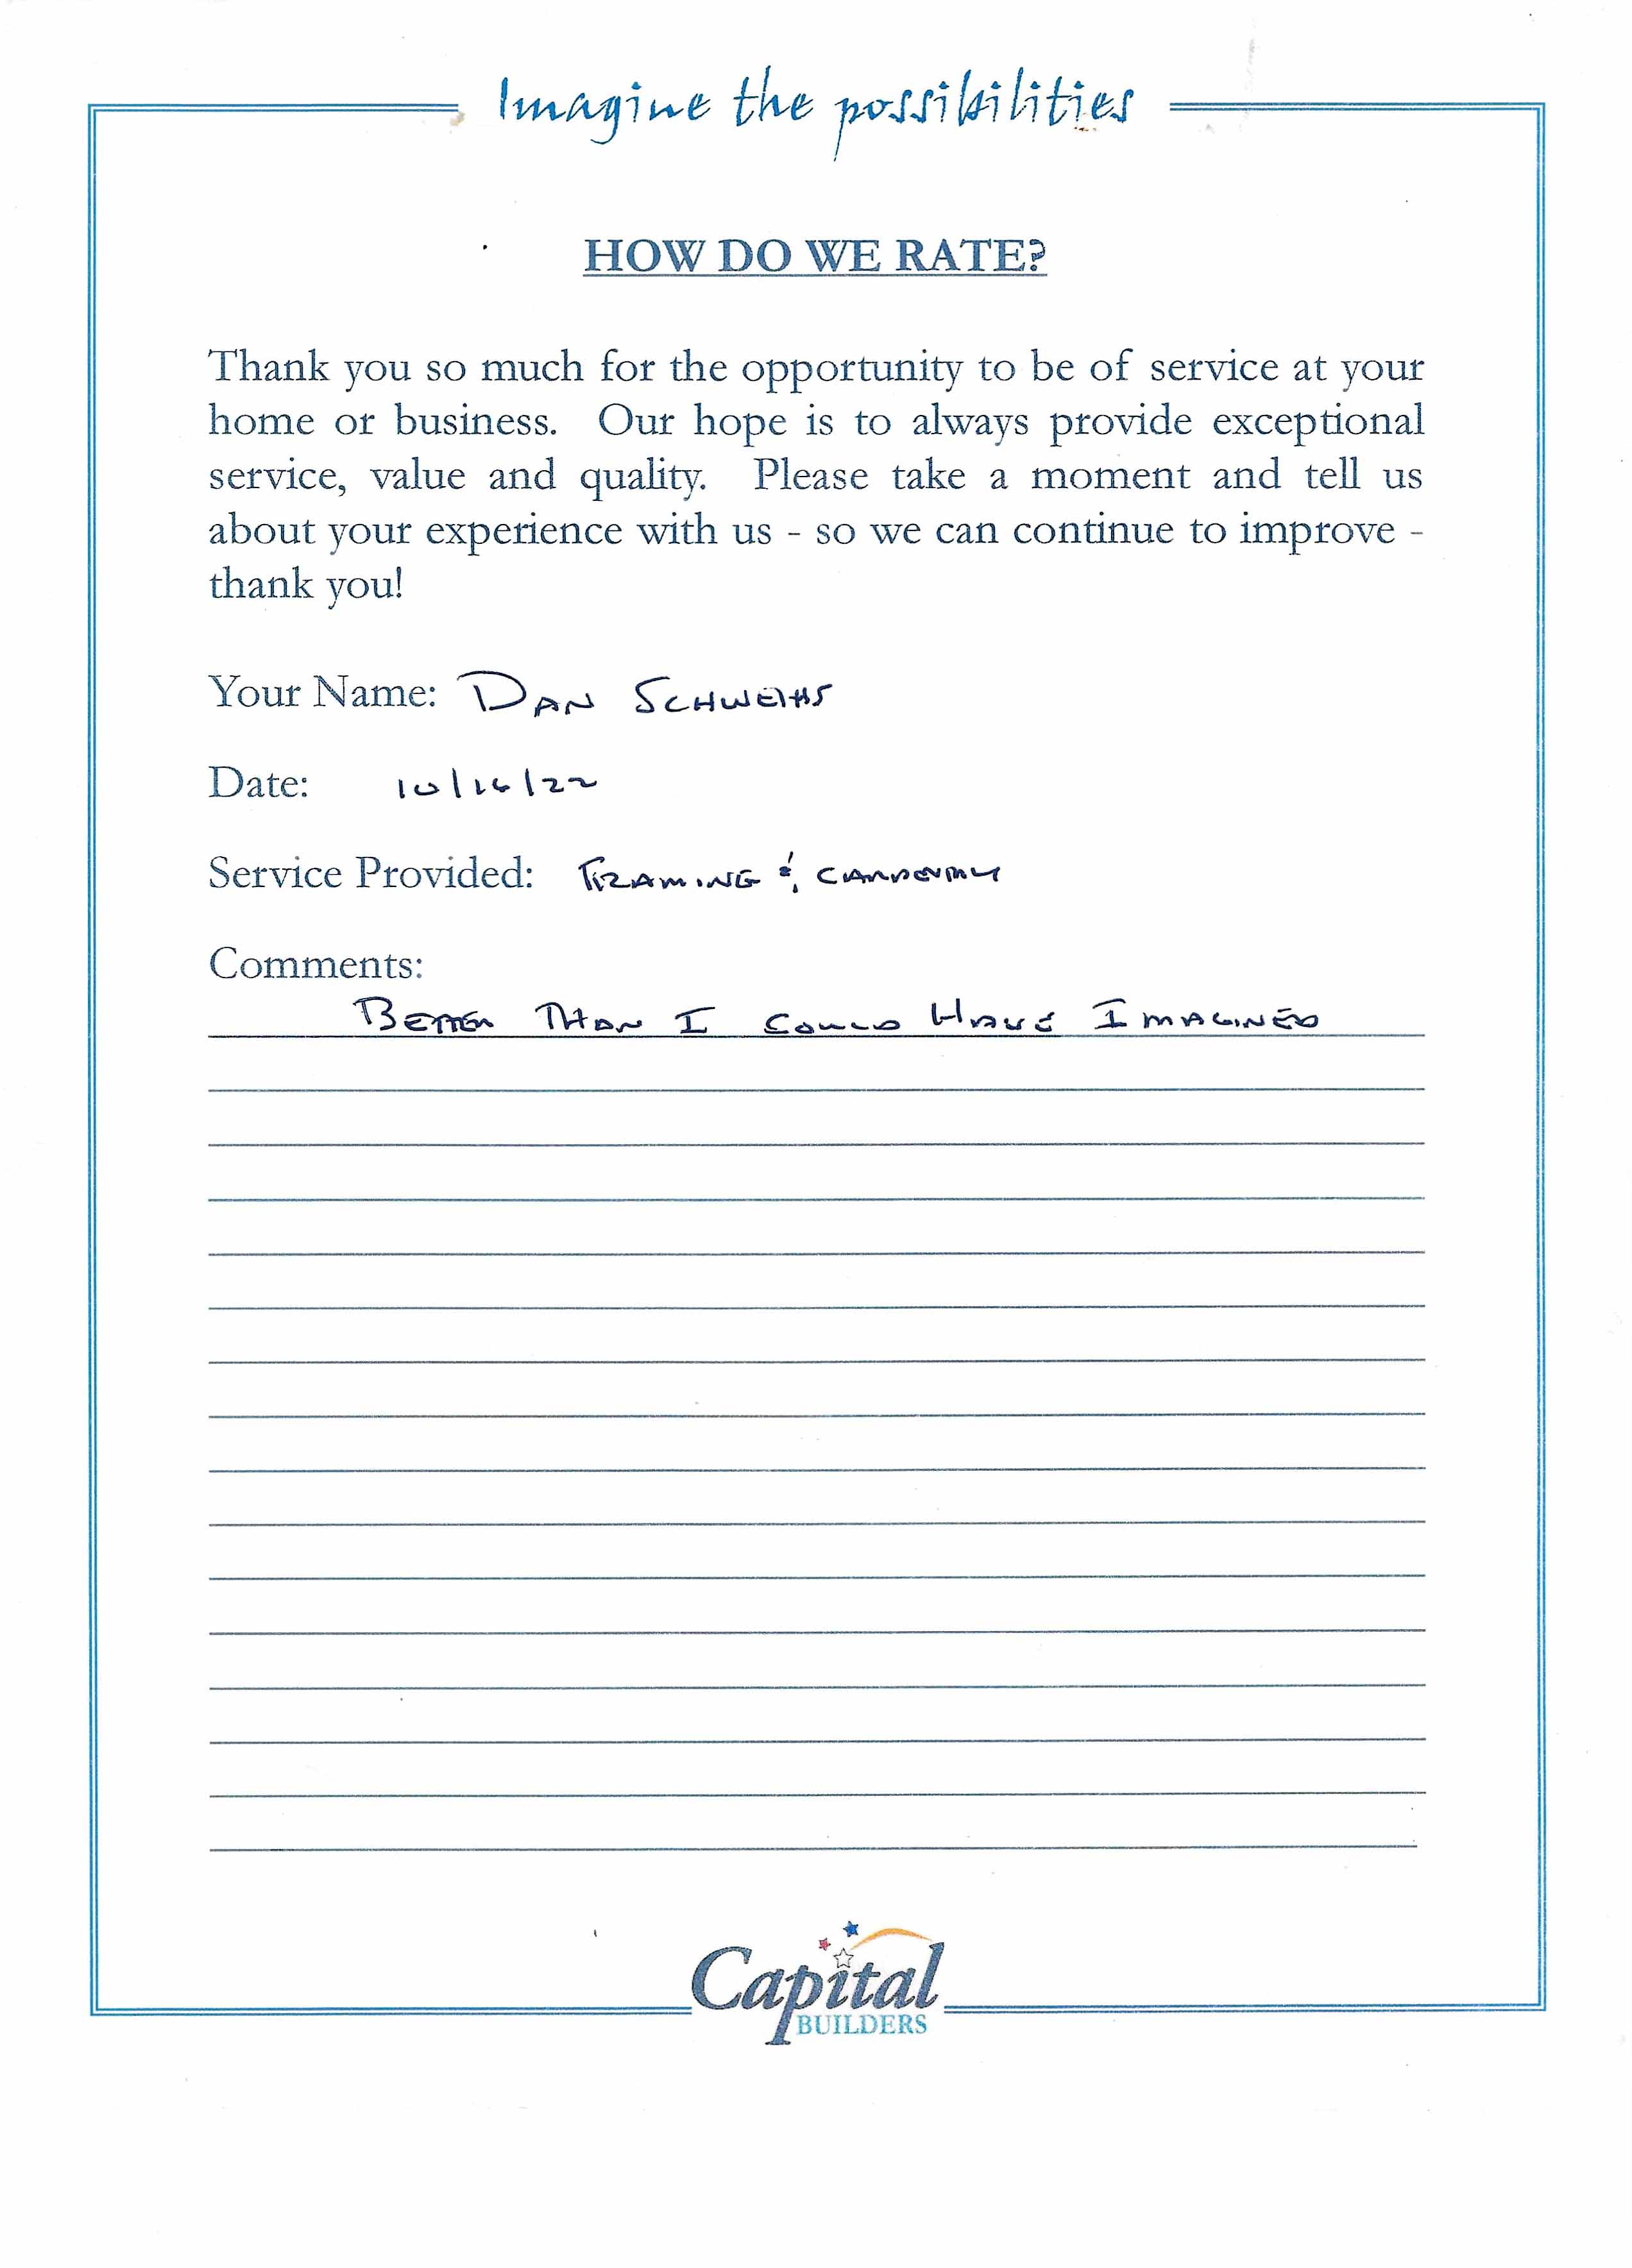 Imagine the possibilities
HOW DO WE RATE?
Thank you so much for the opportunity to be of service at your
home or business. Our hope is to always provide exceptional
service, value and quality. Please take a moment and tell us
about your experience with us - so we can continue to improve -
thank you!
Your Name: DAN SCHWEIHS
Date: 10/16/22
Service Provided: FRAMING & CARPENTRY
Comments:
BETTER THAN I COULD HAVE IMAGINED
Capital
BUILDERS